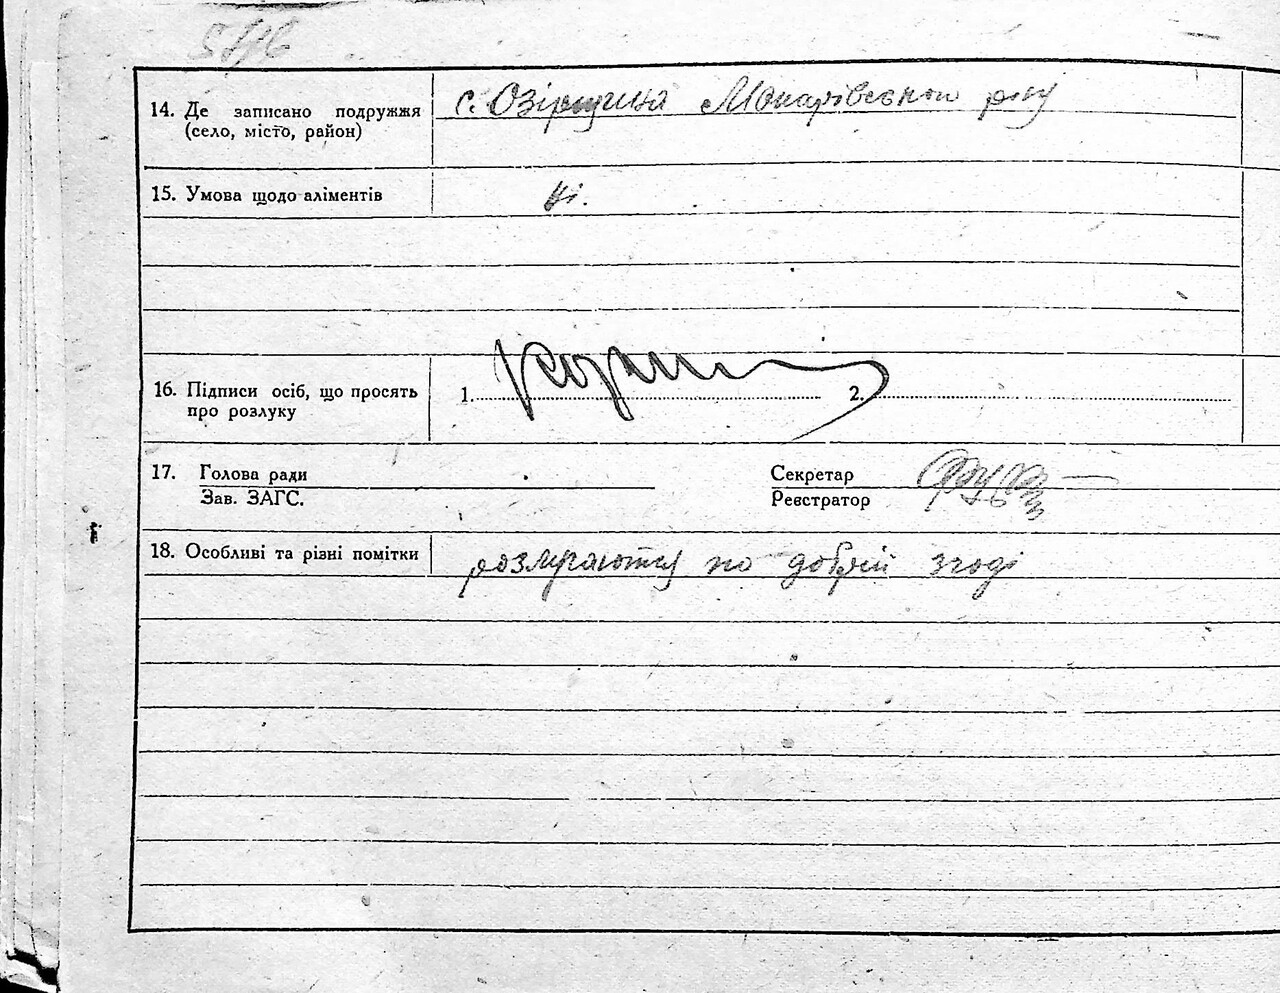 14. Де записано подружжя
(село, місто, район)
с. Озірщина Макарівського р-ну
15. Умова щодо аліментів
Ні.
16. Підписи осіб, що просять
про розлуку
1.
2.
17. Голова ради
Зав. ЗАГС.
Секретар
Реєстратор
18. Особливі та різні помітки
розлучаються по добрій згоді